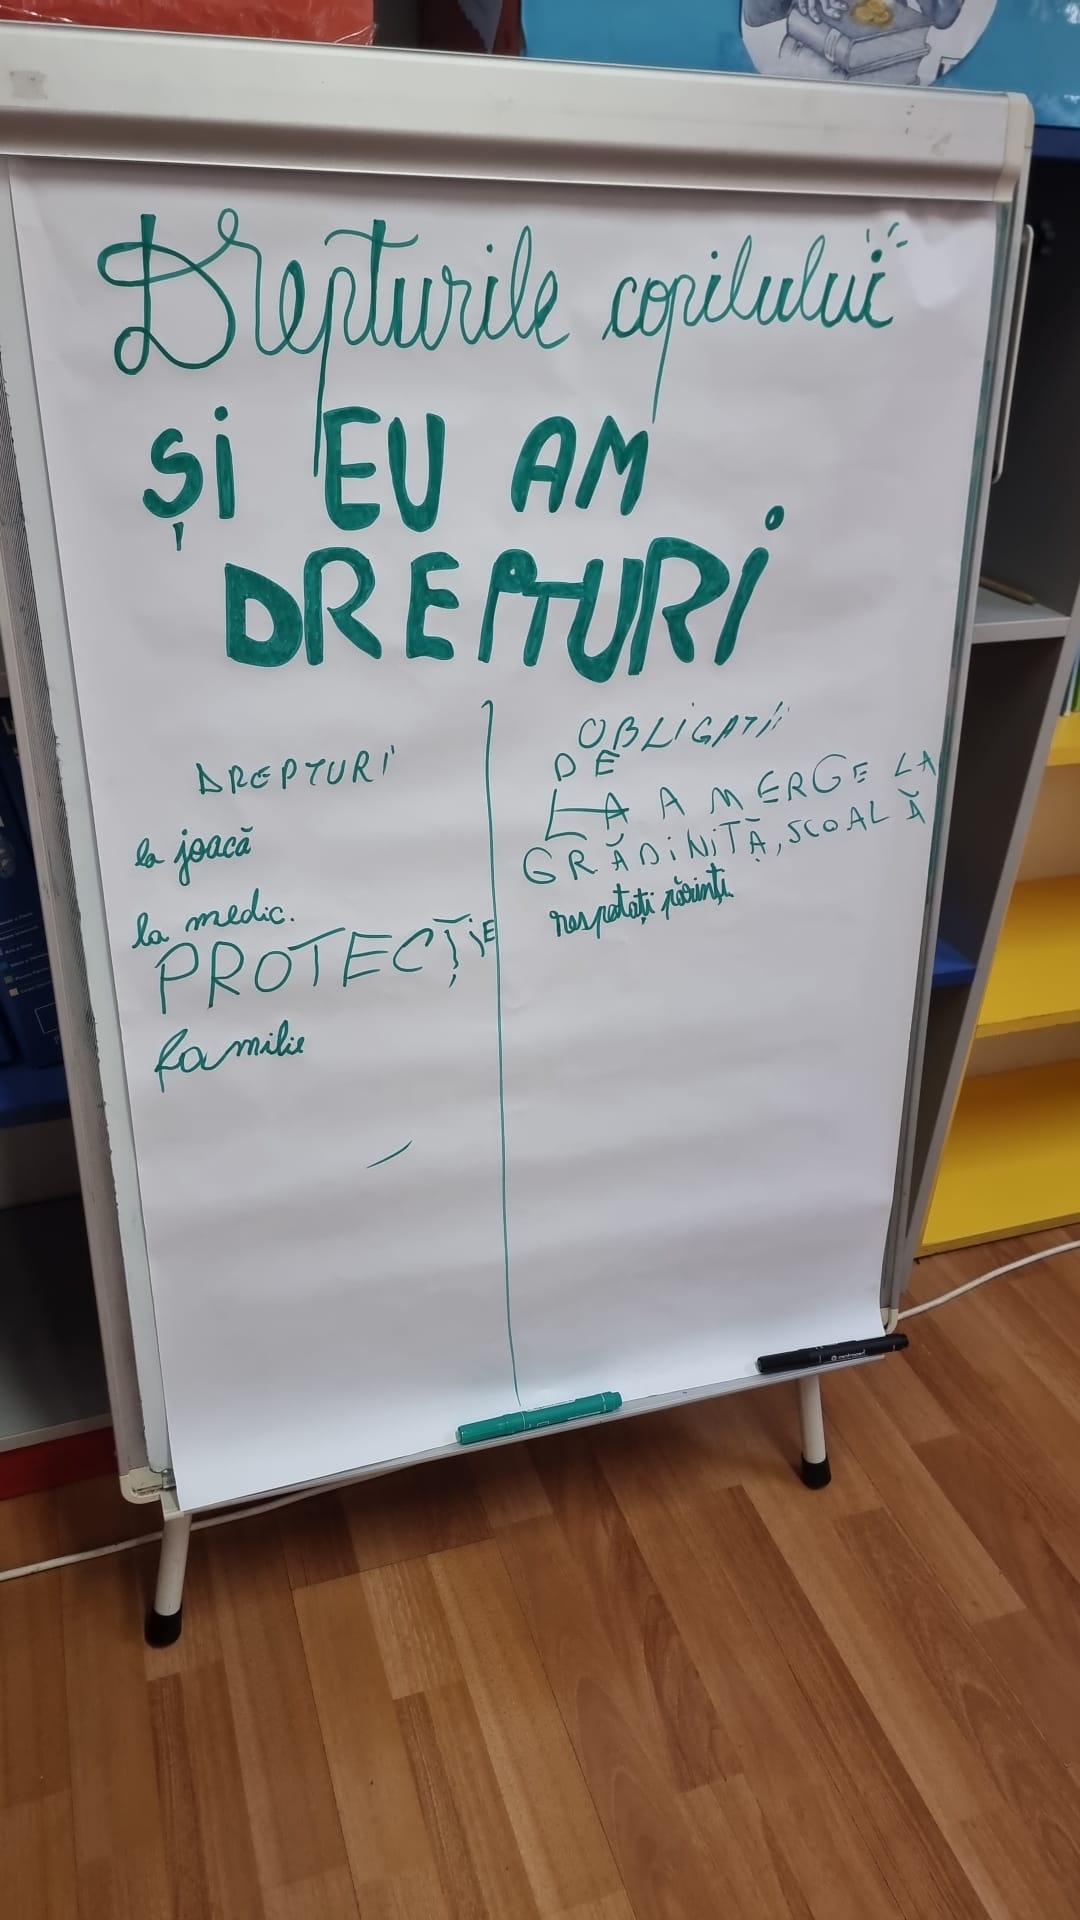 Drepturile copilului
ȘI EU AM
DREPTURI
DREPTURI
la joacă
la medic.
PROTECȚIE
familie
OBLIGAȚII
DE
LA A MERGE LA
GRĂDINIȚĂ, SCOALĂ
respetați părinți.